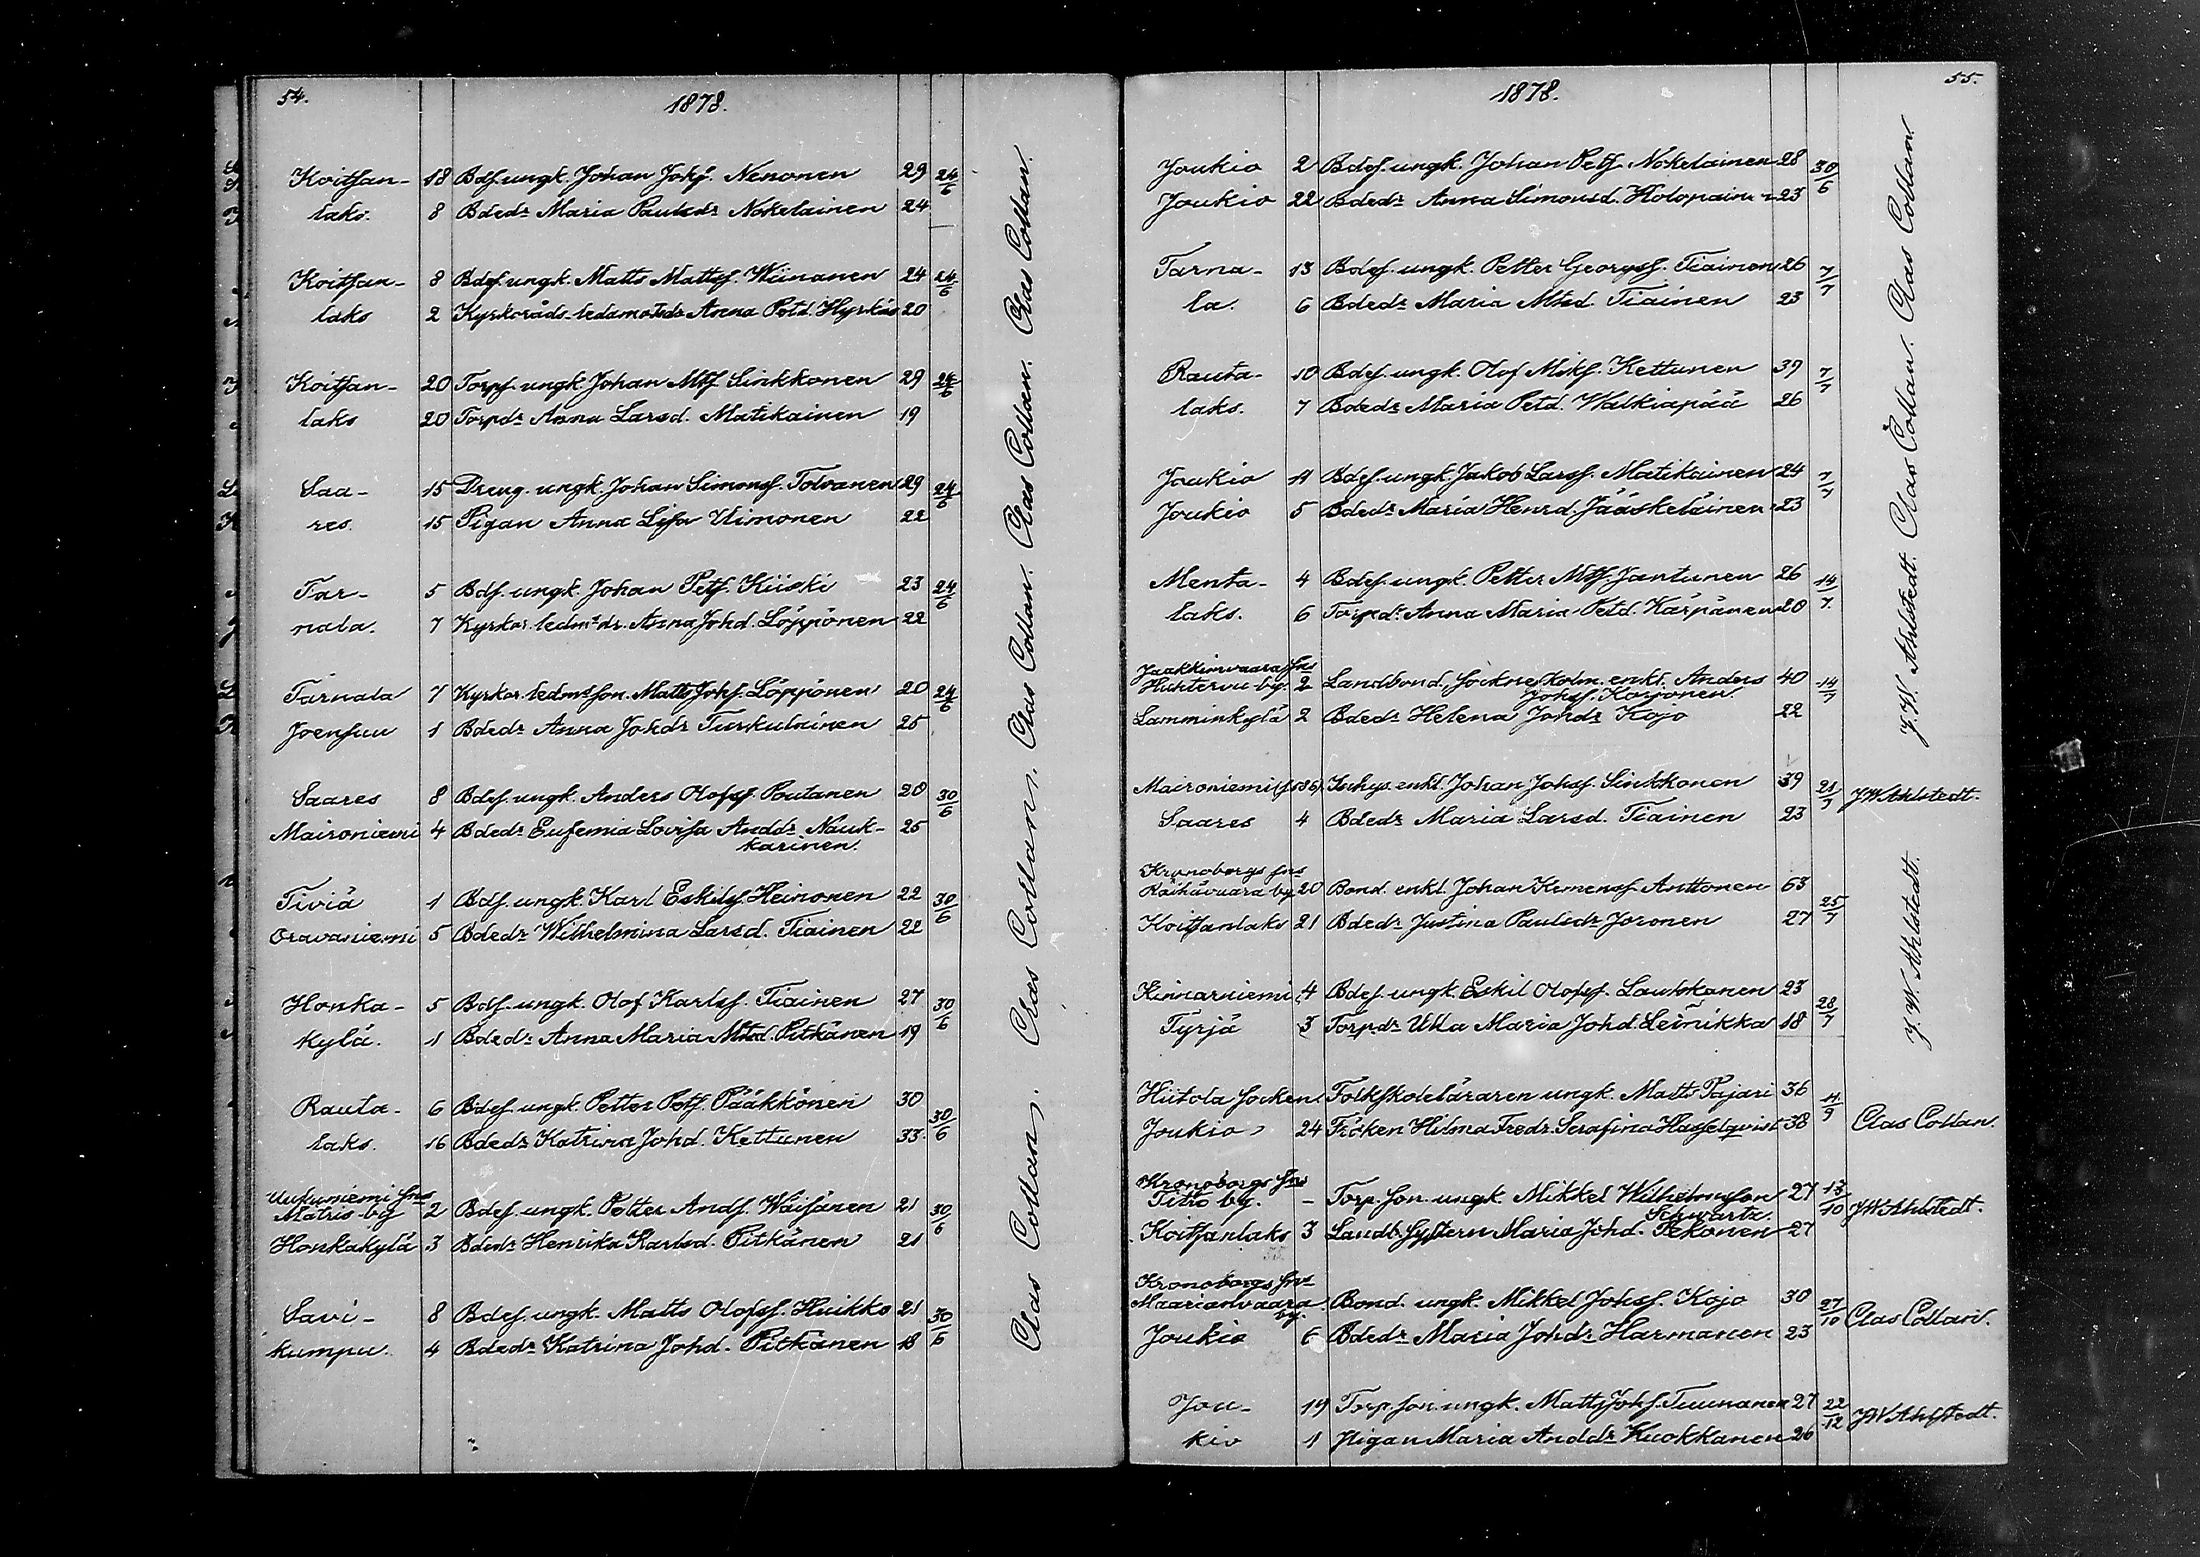 54.
1878.
Koitsan- 18 Bdsf. ungk. Johan Johsf. Nenonen 29 24/6
laks. 8 Bdedr Maria Paulsdr Nokelainen 24
Koitsan- 8 Bdsf. ungk. Matts Mattsf. Wiinanen 24 24/6
laks 2 Kyrkoråds-ledamotsdr Anna Petd. Hyrkäs 20
Koitsan- 20 Torpf. ungk. Johan Mtsf Sinkkonen 29 24/6
laks 20 Torpdr Anna Larsd. Matikainen 19
Saa- 15 Dreng. ungk. Johan Simonsf. Tolvanen 29 24/6
res. 15 Pigan Anna Lisa Uimonen 22
Tar- 5 Bdsf. ungk. Johan Petsf. Kiiski 23 24/6
nala. 7 Kyrkor. ledmts dr. Anna Johd. Löppönen 22
Tarnala 7 Kyrkor. ledmts son. Matts Johsf. Löppönen 20 24/6
Joensuu 1 Bdedr Anna Johdr Turkulainen 25
Saares 8 Bdesf. ungk. Anders Olofsf. Poutanen 20 30/6
Maironiemi 4 Bdedr Eufemia Lovisa Anddr Nauk- 25
karinen.
Tiviä 1 Bdsf. ungk. Karl Eskilsf. Heinonen 22 30/6
Oravaniemi 5 Bdedr Wilhelmina Larsd. Tiainen 22
Honka- 5 Bdsf. ungk. Olof Karlsf. Tiainen 27 30/6
kylä. 1 Bdedr Anna Maria Mtsd. Pitkänen 19
Rauta- 6 Bdesf. ungk. Petter Petsf. Pääkkönen 30 30/6
laks. 16 Bdedr Katrina Johd. Kettunen 33
Uukuniemi sns
Matris by 2 Bdesf. ungk. Petter Andsf. Waisänen 21 30/6
Honkakylä 3 Bdedr Henrika Karlsd. Pitkänen 21
Savi- 8 Bdesf. ungk. Matts Olofsf. Huikko 21 30/6
kumpu. 4 Bdedr Katrina Johd. Pitkänen 18
Clas Collan. Clas Collan. Clas Collan. Clas Collan. Clas Collan. Clas Collan.
55.
1878.
Joukio 2 Bdesf. ungk. Johan Petsf Nokelainen 28 30/6
Joukio 22 Bdedr Anna Simonsd. Holopainen 23
Tarna- 13 Bdesf. ungk. Petter Georgsf. Tiainen 26 7/7
la. 6 Bdedr Maria Mtsd Tiainen 23
Rauta- 10 Bdesf. ungk. Olof Miksf. Kettunen 39 7/7
laks. 7 Bdedr Maria Petd. Walkiapää 26
Joukio 11 Bdesf. ungk. Jakob Larsf. Matikainen 24 7/7
Joukio 5 Bdedr Maria Henrd. Jääskeläinen 23
Menta- 4 Bdesf. ungk. Petter Mtsf. Jantunen 26 14/7
laks. 6 Torpdr Anna Maria Petd. Kärpänen 20
Jaakkimvaara sns
by. 2 Landbond. enkl. Anders 40 14/7
Johsf. Korjonen
Lamminkylä 2 Bdedr Helena Johdr Kojo 22
Maironiemi Inhys. enkl. Johan Johsf. Sinkkonen 39 21/7 JWAhlstedt.
Saares 4 Bdedr Maria Larsd. Tiainen 23
Kronoborgs sns
Räihävaara by 20 Bond. enkl. Johan Klemensf. Anttonen 63 25/7
Koitsanlaks 21 Bdedr Justina Paulsdr Joronen 27
Kinnarniemi 4 Bdesf. ungk. Eskil Olofsf. Laukkanen 23 28/7
Tyrjä 3 Torpdr Ulla Maria Johd. Leinikka 18
Hiitola socken. Folkskoleläraren ungk. Matts Pajari 36 11/9 Clas Collan.
Joukio 24 Fröken Hilma Fredr. Serafina Hasselqvist 38
Kronoborgs sns
Titto by. - Torp. son. ungk. Mikkel Wilhelmsson 27 13/10 JWAhlstedt.
Schwartz.
Koitsanlaks 3 Landb. systern Maria Johd. Pekonen 27
Kronoborgs sns
Maarianvaara Bond. ungk. Mikkel Johsf. Kojo 30 27/10 Clas Collan.
by.
Joukio 6 Bdedr Maria Johdr Harmanen 23
Jou- 19 Torp. son. ungk. Matts Johsf. Tuunanen 27 22/12 JWAhlstedt.
kio 1 Pigan Maria Anddr Kuokkanen 26
J.W. Ahlstedt. Clas Collan. Clas Collan.
J.W. Ahlstedt.